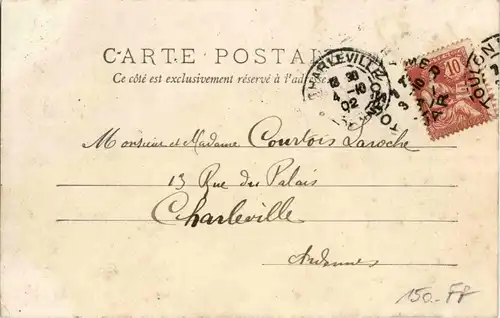 CARTE POSTALE
Ce côté est exclusivement réservé à l'adresse
CHARLEVILLE
30
4 -10
02
TOULON
3
10
TOULON
Monsieur et Madame Courtois Laroche
13 Rue du Palais
Charleville
Ardennes
150.- FF